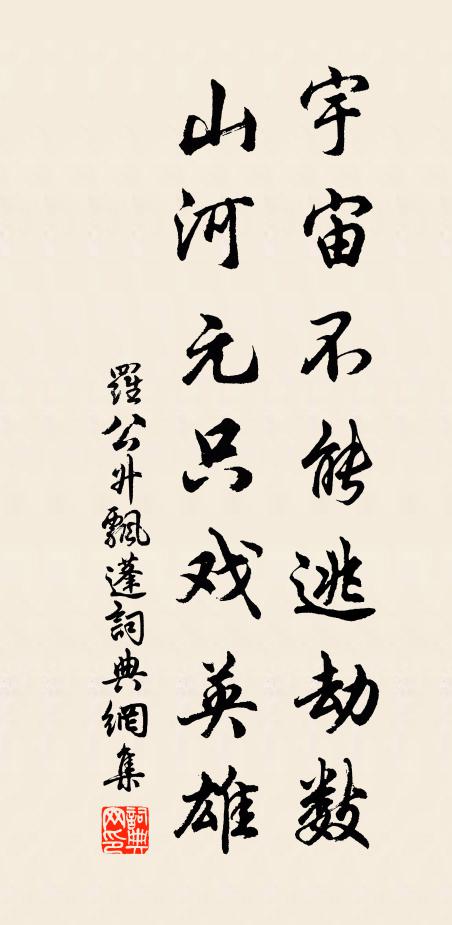 宇宙不能逃劫数
山河元只戏英雄
羅公升飄蓬詞典網集
詞典网印